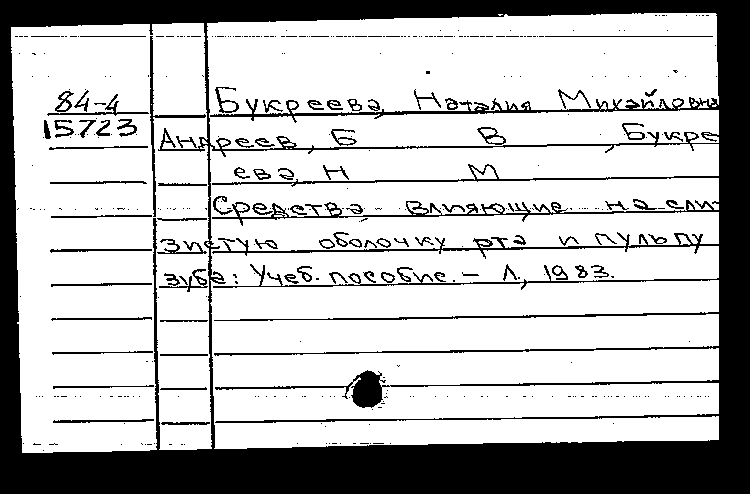 84-4 Букреева, Наталия Михайловна
15723 Андреев, Б В , Букре
ева, Н М
Средства, влияющие на сли-
зистую оболочку рта и пульпу
зуба: Учеб. пособие. – Л., 1983.